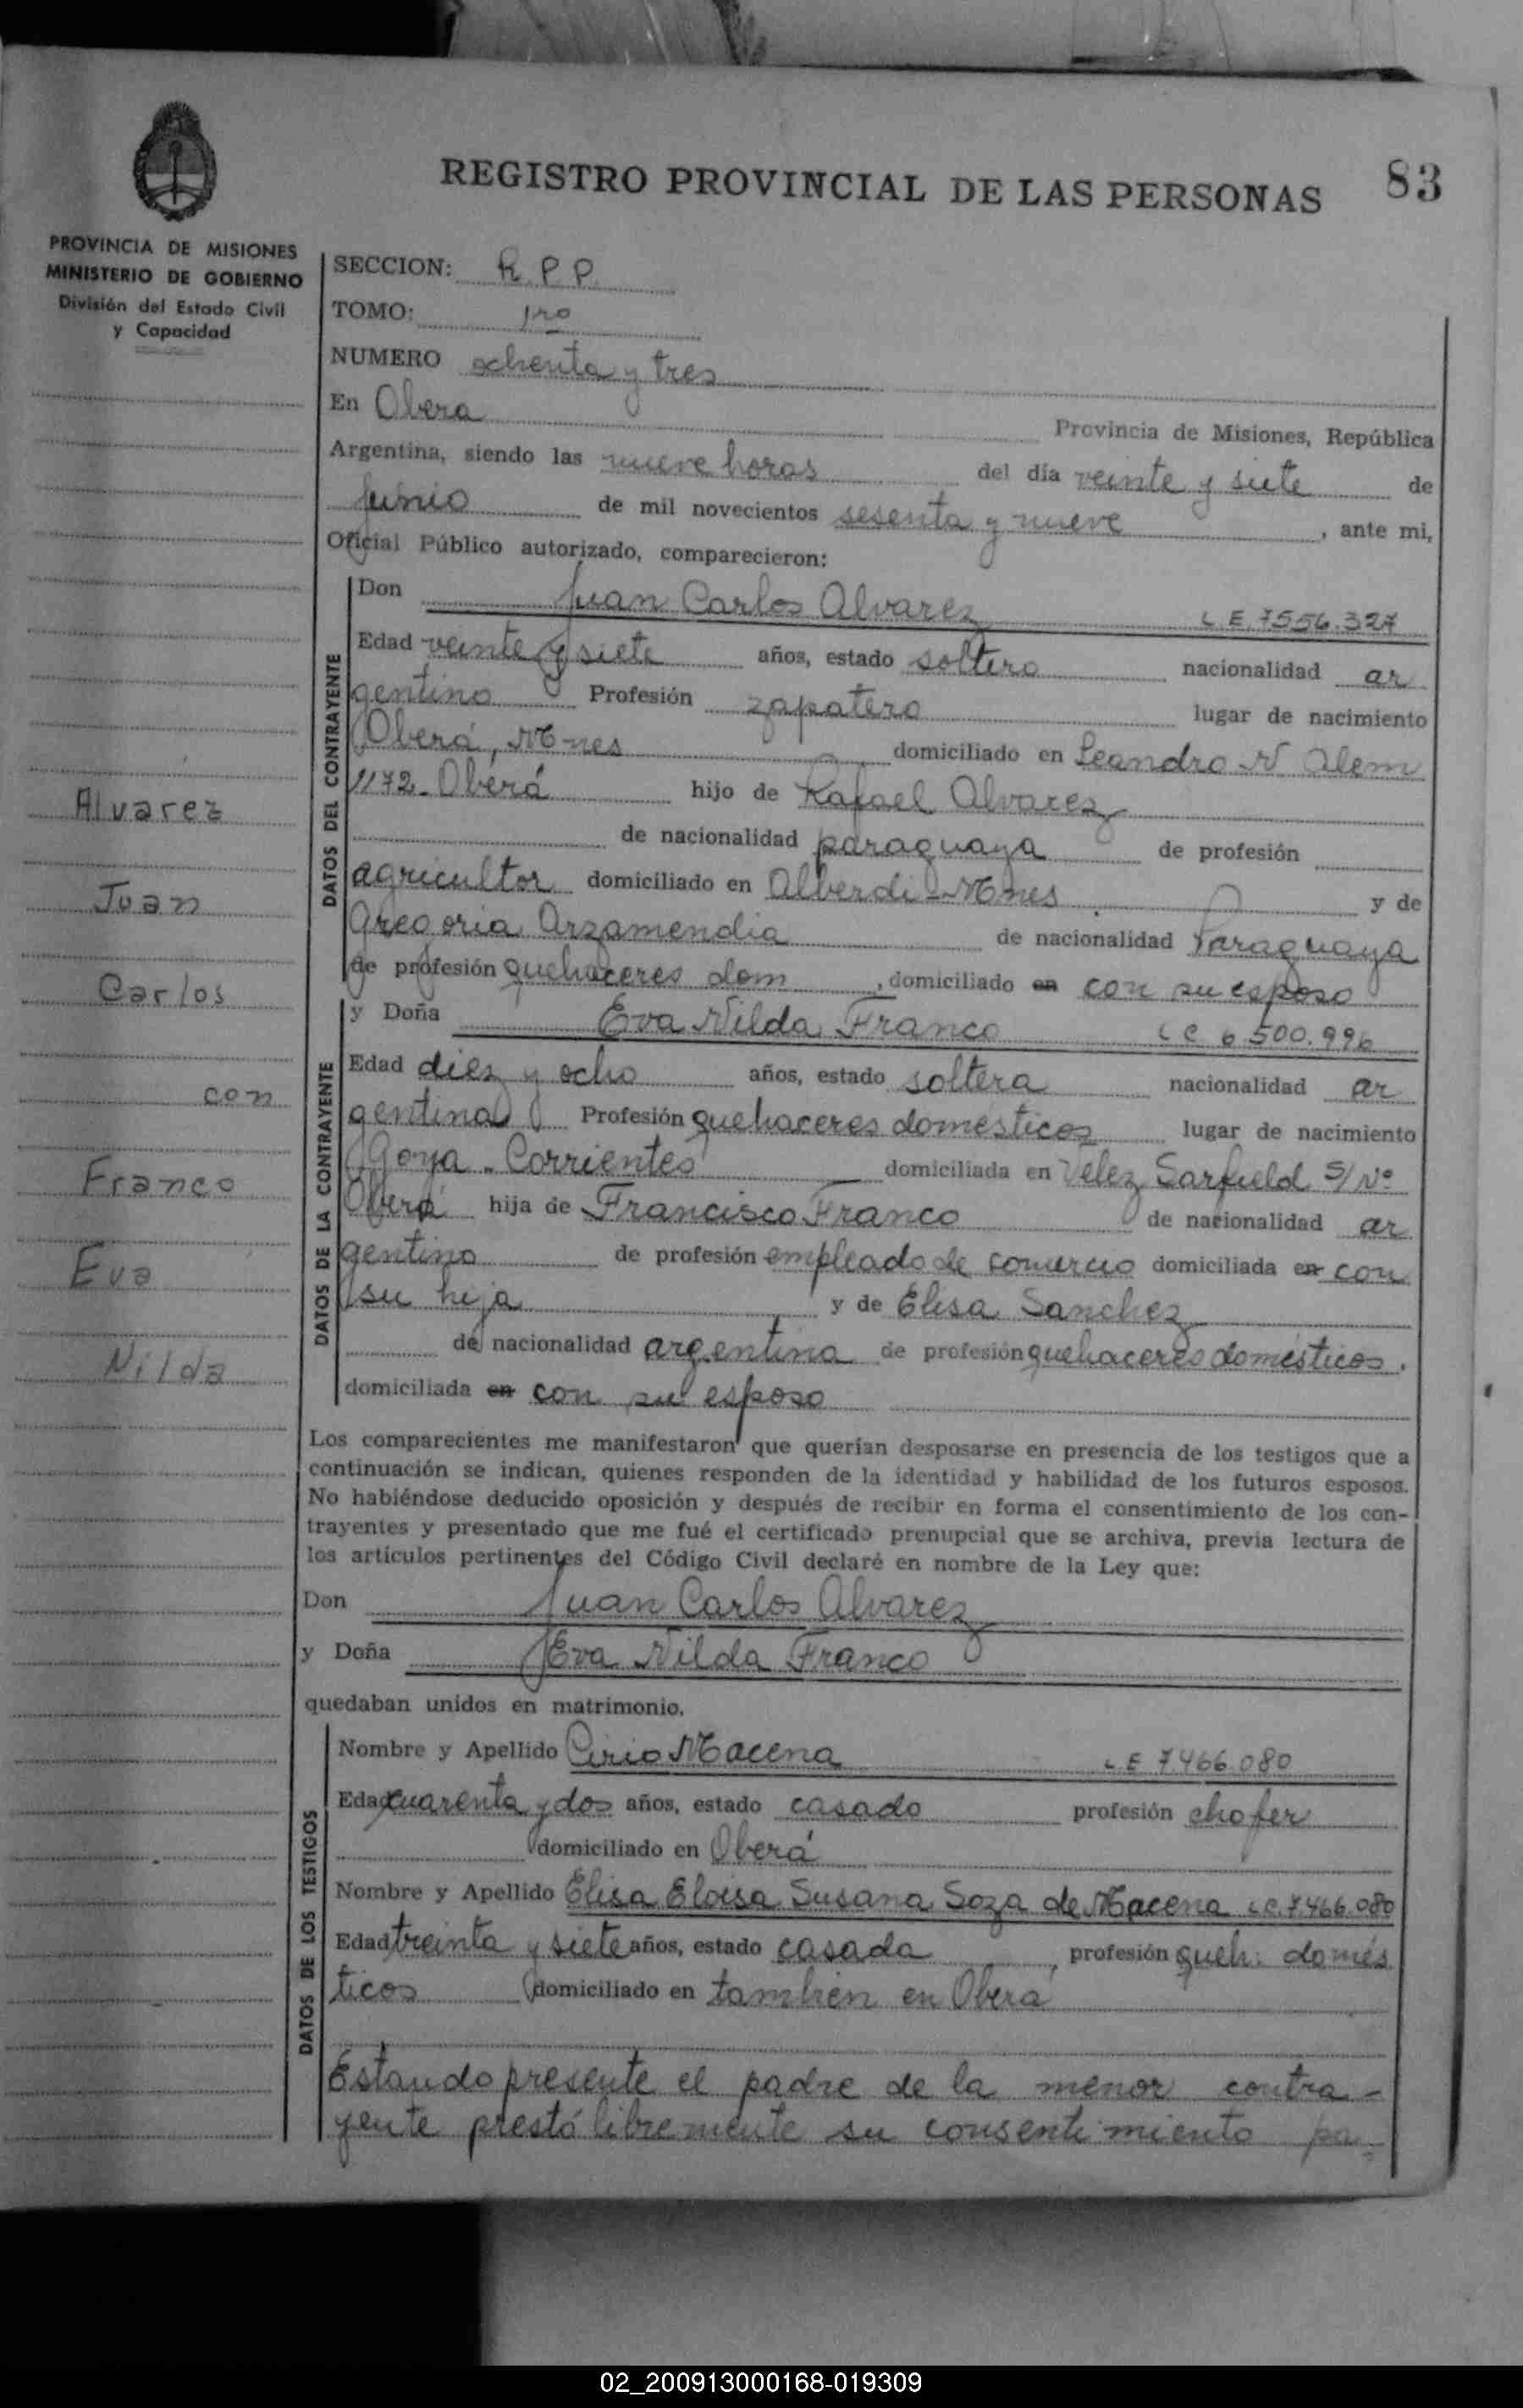 REGISTRO PROVINCIAL DE LAS PERSONAS 83
PROVINCIA DE MISIONES
MINISTERIO DE GOBIERNO
División del Estado Civil
y Capacidad
Alvarez
Juan
Carlos
con
Franco
Eva
Nilda
SECCION: R.P.P.
TOMO: 1ro
NUMERO ochenta y tres
En Obera Provincia de Misiones, República
Argentina, siendo las nueve horas del día veinte y siete de
Junio de mil novecientos sesenta y nueve, ante mi,
Oficial Público autorizado, comparecieron:
DATOS DEL CONTRAYENTE
Don Juan Carlos Alvarez L.E. 7556.327
Edad veinte y siete años, estado soltero nacionalidad ar
gentino Profesión zapatero lugar de nacimiento
Oberá, Mnes domiciliado en Leandro N Alem
1172 - Oberá hijo de Rafael Alvarez
de nacionalidad paraguaya de profesión
agricultor domiciliado en Alberdi - Mnes y de
Gregoria Arzamendia de nacionalidad Paraguaya
de profesión quehaceres dom, domiciliado en con su esposo
DATOS DE LA CONTRAYENTE
y Doña Eva Nilda Franco L C 6 500.996
Edad diez y ocho años, estado soltera nacionalidad ar
gentina Profesión quehaceres domésticos lugar de nacimiento
Goya - Corrientes domiciliada en Velez Sarfield S/Nº
Oberá hija de Francisco Franco de nacionalidad ar
gentino de profesión empleado de comercio domiciliada en con
su hija y de Elisa Sanchez
de nacionalidad argentina de profesión quehaceres domésticos.
domiciliada en con su esposo
Los comparecientes me manifestaron que querían desposarse en presencia de los testigos que a
continuación se indican, quienes responden de la identidad y habilidad de los futuros esposos.
No habiéndose deducido oposición y después de recibir en forma el consentimiento de los con-
trayentes y presentado que me fué el certificado prenupcial que se archiva, previa lectura de
los artículos pertinentes del Código Civil declaré en nombre de la Ley que:
Don Juan Carlos Alvarez
y Doña Eva Nilda Franco
quedaban unidos en matrimonio.
DATOS DE LOS TESTIGOS
Nombre y Apellido Cirio Macena L.E 7.466.080
Edad cuarenta y dos años, estado casado profesión chofer
domiciliado en Oberá
Nombre y Apellido Elisa Eloisa Susana Soza de Macena L.C. 7.466.080
Edad treinta y siete años, estado casada, profesión queh. domés
ticos domiciliado en tambien en Oberá
Estando presente el padre de la menor contra-
yente prestó libremente su consentimiento pa=
02_200913000168-019309